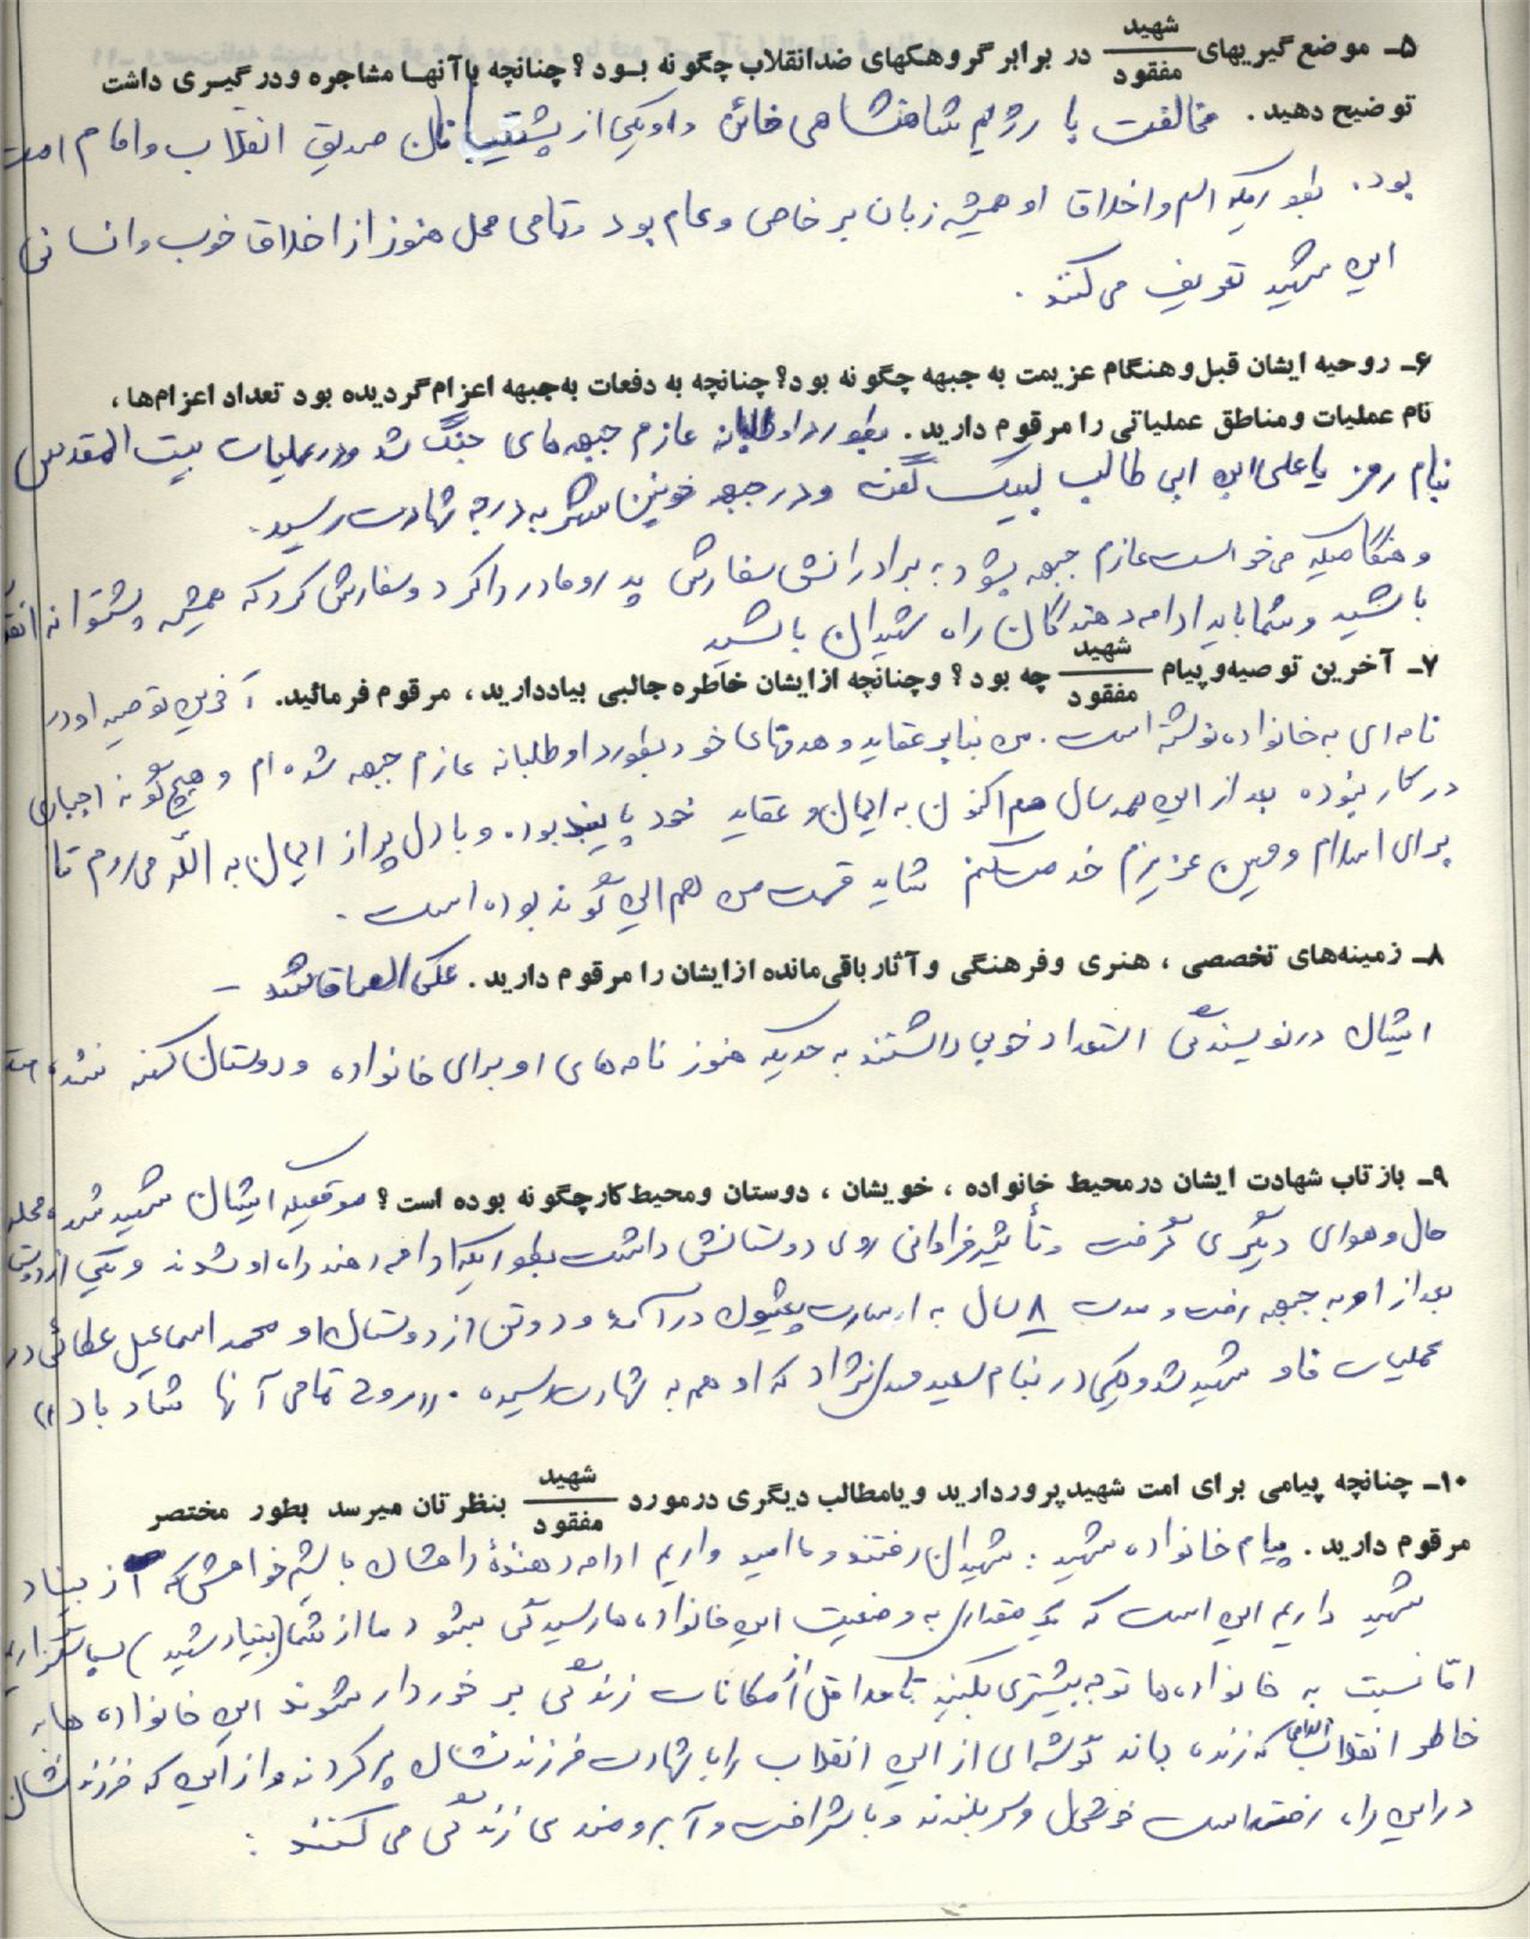 ۵ـ موضع گیریهای شهید/مفقود در برابر گروهکهای ضدانقلاب چگونه بود؟ چنانچه با آنها مشاجره و درگیری داشت
توضیح دهید. مخالفت با رژیم شاهنشاهی خائن و او یکی از پشتیبانان صدیق انقلاب و امام امت
بود. بطوریکه اسم و اخلاق او همیشه زبان بر خاص و عام بود و تمامی محل هنوز از اخلاق خوب و انسانی
این شهید تعریف می کنند.
۶ـ روحیه ایشان قبل و هنگام عزیمت به جبهه چگونه بود؟ چنانچه به دفعات به جبهه اعزام گردیده بود تعداد اعزام‌ها،
نام عملیات و مناطق عملیاتی را مرقوم دارید. بطور داوطلبانه عازم جبهه های جنگ شد و در عملیات بیت المقدس
بنام رمز یا علی ابن ابی طالب لبیک گفته و در جبهه خونین شهر به درجه شهادت رسید.
و هنگامیکه می خواست عازم جبهه بشود به برادرانش سفارش پدر و مادر را کرد و سفارش کرد که همیشه پشتوانه
باشید و شما باید ادامه دهندگان راه شهیدان باشید
۷ـ آخرین توصیه و پیام شهید/مفقود چه بود؟ و چنانچه از ایشان خاطره جالبی بیاد دارید، مرقوم فرمائید. آخرین توصیه او در
نامه ای به خانواده نوشته است. من بنابر عقاید و هدفهای خود بطور داوطلبانه عازم جبهه شده ام و هیچ گونه اجباری
در کار نبوده بعد از این همه سال هم اکنون به ایمان و عقاید خود پایبند بوده و با دل پر از ایمان به الله می روم تا
برای اسلام و میهن عزیزم خدمت کنم شاید قسمت من هم این گونه بوده است.
۸ـ زمینه‌های تخصصی، هنری و فرهنگی و آثار باقی‌مانده از ایشان را مرقوم دارید. عکس الصاق شد –
ایشان در نویسندگی استعداد خوبی داشتند به حدیکه هنوز نامه های او برای خانواده و دوستان کهنه نشده
۹ـ بازتاب شهادت ایشان در محیط خانواده، خویشان، دوستان و محیط کار چگونه بوده است؟ موقعیکه ایشان شهید شد، محله
حال و هوای دیگری گرفت و تأثیر فراوانی روی دوستانش داشت بطوریکه ادامه دهنده راه او شدند و یکی از
بعد از او به جبهه رفت و مدت ۸ سال به اسارت در آمد و دو تن از دوستان او محمد اسماعیل عطائی در
عملیات فاو شهید شد و یکی در بنام سعید که او هم به شهادت رسیده. «روح تمامی آنها شاد باد»
۱۰ـ چنانچه پیامی برای امت شهیدپرور دارید و یا مطالب دیگری در مورد شهید/مفقود بنظرتان میرسد بطور مختصر
مرقوم دارید. پیام خانواده شهید: شهیدان رفتند و ما امید واریم ادامه دهندهٔ راهشان باشیم خواهشی که از بنیاد
شهید داریم این است که یک مقداری به وضعیت این خانواده ها رسیدگی بشود ما از شما (بنیاد شهید) سپاسگزاریم
امّا نسبت به خانواده ها توجه بیشتری بکنید تا حداقل از امکانات زندگی بر خوردار شوند این خانواده ها به
خاطر انقلاب اسلامی که زنده بماند گوشه ای از این انقلاب را با شهادت فرزندشان پر کردند و از این که فرزندشان
در این راه رفته است خوشحال و سربلندند و با شرافت و آبرومندی زندگی می کنند.